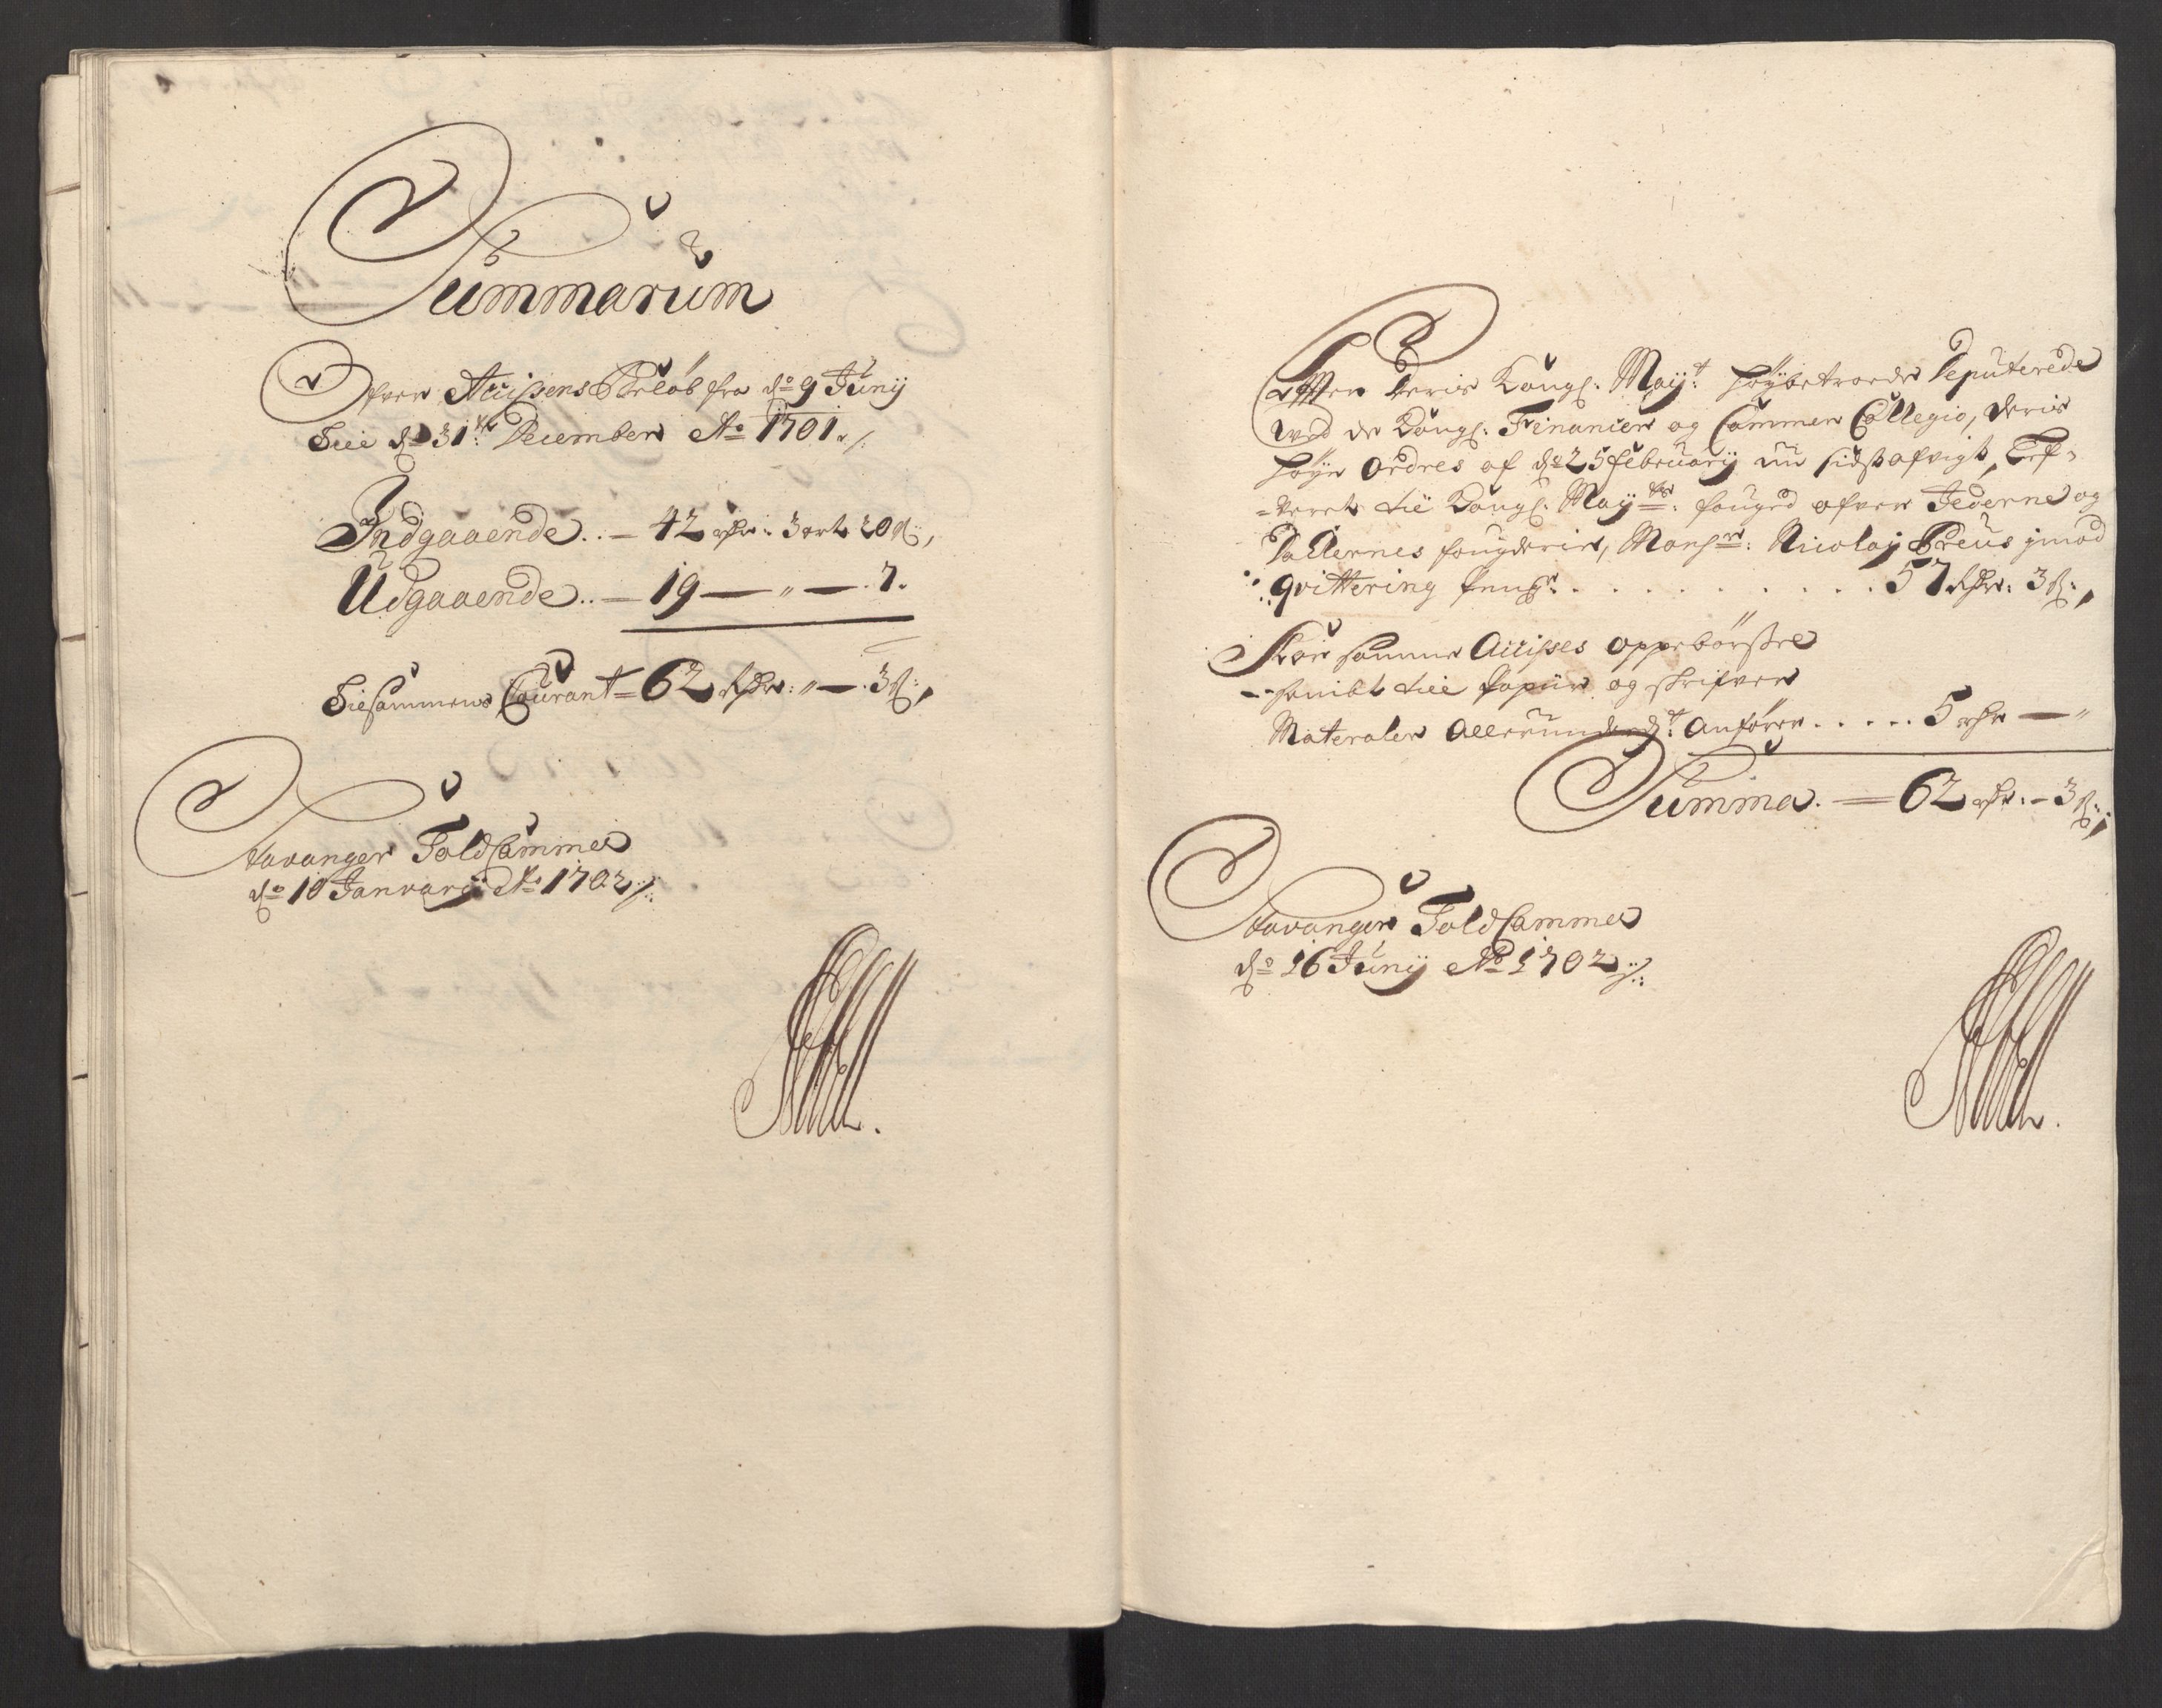 Summarum
Ofver Accisens Beløb fra dn 9 Junij
Till d 31te December Ao 1701 ./.
Indgaaende .. — 42 rdr: 3 ort 20 ß,
Udgaaende .. — 19 — " — 7.
Tilsammens Courant = 62 Rdr: " — 3 ß,
Stavanger Told Cammer
dn 10 Januarij Ao 1702 ./.
Efter Deris Kongl: Mayt: høybetroede Deputerede
ved de Kongl: Financier og Cammer Collegio, Deris
høye Ordres af dn 25 februarij nu sidstafvigt, Lef-
-veret till Kongl: Mayts: fouged ofver Jederne og
Dallernes fougderie, Monsr: Nicolaj Preus imod
qvittering . . . . . . . . . . 57 Rdr: 3 ß,
For samme Accises oppebørsel
sampt till Papiir og skrifver
Materaler Allerunderdt: Anføres . . . . . 5 rdr — "
Summa. — 62 rdr: - 3 ß,
Stavanger Told Cammer
dn 16 Junij Ao 1702 ./.